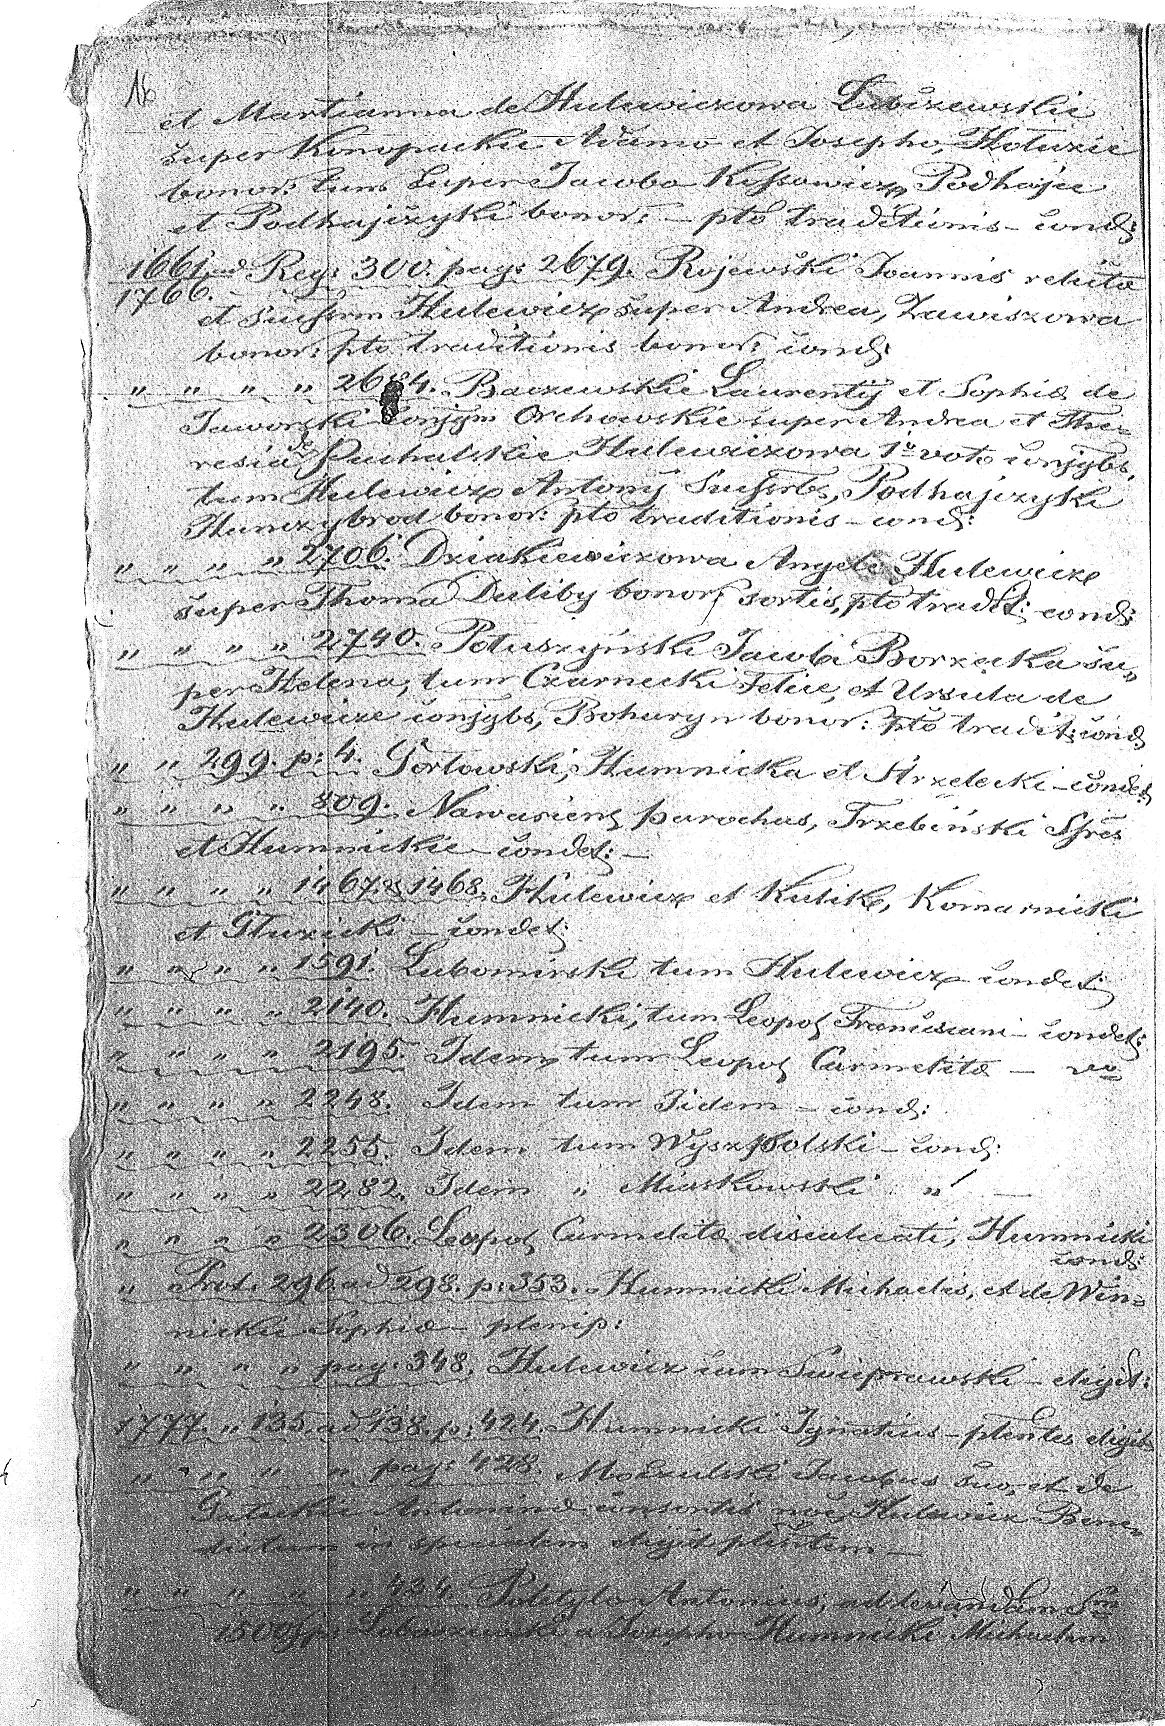 16
et Martianna de Hulewiczowa Lubiszewskie
super Konopackie Adamo et Josepho, Hołuzie
bonor: tum super Jacobo Kossowicz, Podhajce
et Podhajczyki bonor: – pto traditionis – cond:
1661. ad Reg: 300. pag: 2679. Rojewski Joannis relicta
1766.
et sucssrm Hulewicz super Andrea, Zawiszowa
bonor: pto traditionis bonor: cond:
" " " " 2684. Baczewskie Laurentij et Sophia de
Jaworski conjgm Orchowskie super Andrea et The-
resia de Puchalskie Hulewiczowa 1º voto conjgbs,
tum Hulewicz Antonij sucssrbs, Podhajczyki
Hunczybrod bonor: pto traditionis – cond:
" " " " 2706. Dziakiewiczowa Angela Hulewicz
super Thoma Duliby bonor: sortis, pto tradit: cond:
" " " " 2740. Potuszyński Jacobi Borzęcka su"
per Helena, tum Czarnecki Felice, et Ursula de
Hulewicze conjgbs, Bohuryn bonor: pto tradit: cond:
" " 299. p: 4. Gorlowski, Humnicka et Strzelecki – condes:
" " " " 809. Nawarieng parochus, Trzebiński Sfres
et Humnickie – condes: –
" " " " 1467. & 1468. Hulewicz et Kulik, Komarnicki
et Głuzicki – condes:
" " " " 1591. Lubomirski tum Hulewicz condes:
" " " " 2140. Humnicki, tum Leopol Franciscani – condes:
" " " " 2195. Idem, tum Leopol Carmelita –
" " " " 2248. Idem tum Iidem – cond:
" " " " 2255. Idem tum Wyszpolski – cond:
" " " " 2282. Idem " Miaskowski " –
" " " " 2306. Leopol Carmelita discalceati, Humnicki
cond:
" Prot. 296. ad 298. p: 353. Humnicki Michaelis, et de Win-
nickie Sophia – plenip:
" " " " pag: 348. Hulewicz cum Swieprawski – eligit:
1777. " 135. ad 138. p: 424. Humnicki Ignatius – plentes eligit
" " " " " pag: 428. Moczulski Jacobus suo, et de
Antonina consortis noe, Hulewicz Bene-
dictum in specialem eligit plentem –
" " " " " 434. Politylo Antonius, ad levandam Sm
1500 fp. Lobaszewski a Josepho Humnicki Michaelem